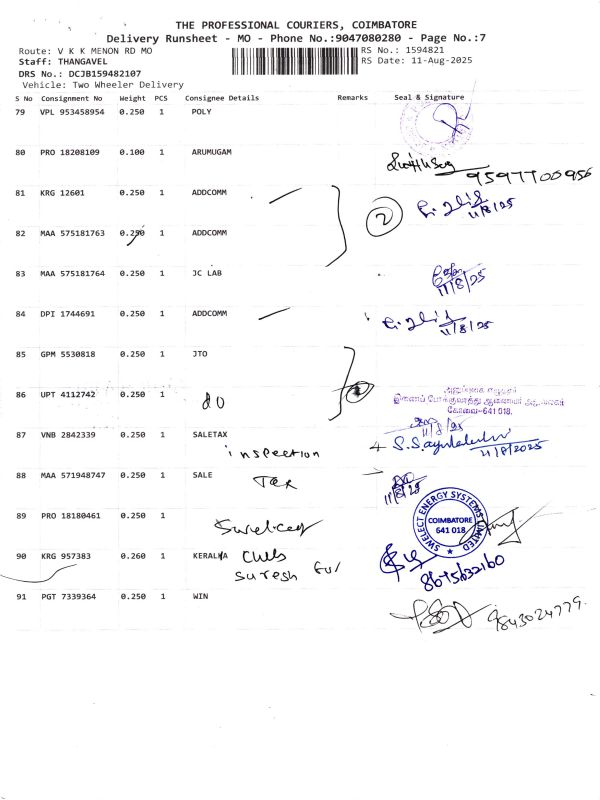 THE PROFESSIONAL COURIERS, COIMBATORE
Delivery Runsheet - MO - Phone No.:9047080280 - Page No.:7
Route: V K K MENON RD MO
RS No.: 1594821
Staff: THANGAVEL
RS Date: 11-Aug-2025
DRS No.: DCJB159482107
Vehicle: Two Wheeler Delivery
S No Consignment No Weight PCS Consignee Details Remarks Seal & Signature
79 VPL 953458954 0.250 1 POLY
80 PRO 18208109 0.100 1 ARUMUGAM
9597700956
81 KRG 12601 0.250 1 ADDCOMM
2
11/8/25
82 MAA 575181763 0.250 1 ADDCOMM
83 MAA 575181764 0.250 1 JC LAB
11/8/25
84 DPI 1744691 0.250 1 ADDCOMM
11/8/25
85 GPM 5530818 0.250 1 JTO
86 UPT 4112742 0.250 1
do
கோவை-641 018.
11/8/25
87 VNB 2842339 0.250 1 SALETAX
inspection
11/8/2025
88 MAA 571948747 0.250 1 SALE
Tax
11/8/25
89 PRO 18180461 0.250 1
Swelect
SWELECT ENERGY SYSTEMS LIMITED
COIMBATORE
641 018
90 KRG 957383 0.260 1 KERALA Club
Suresh
8675632160
91 PGT 7339364 0.250 1 WIN
9843024779